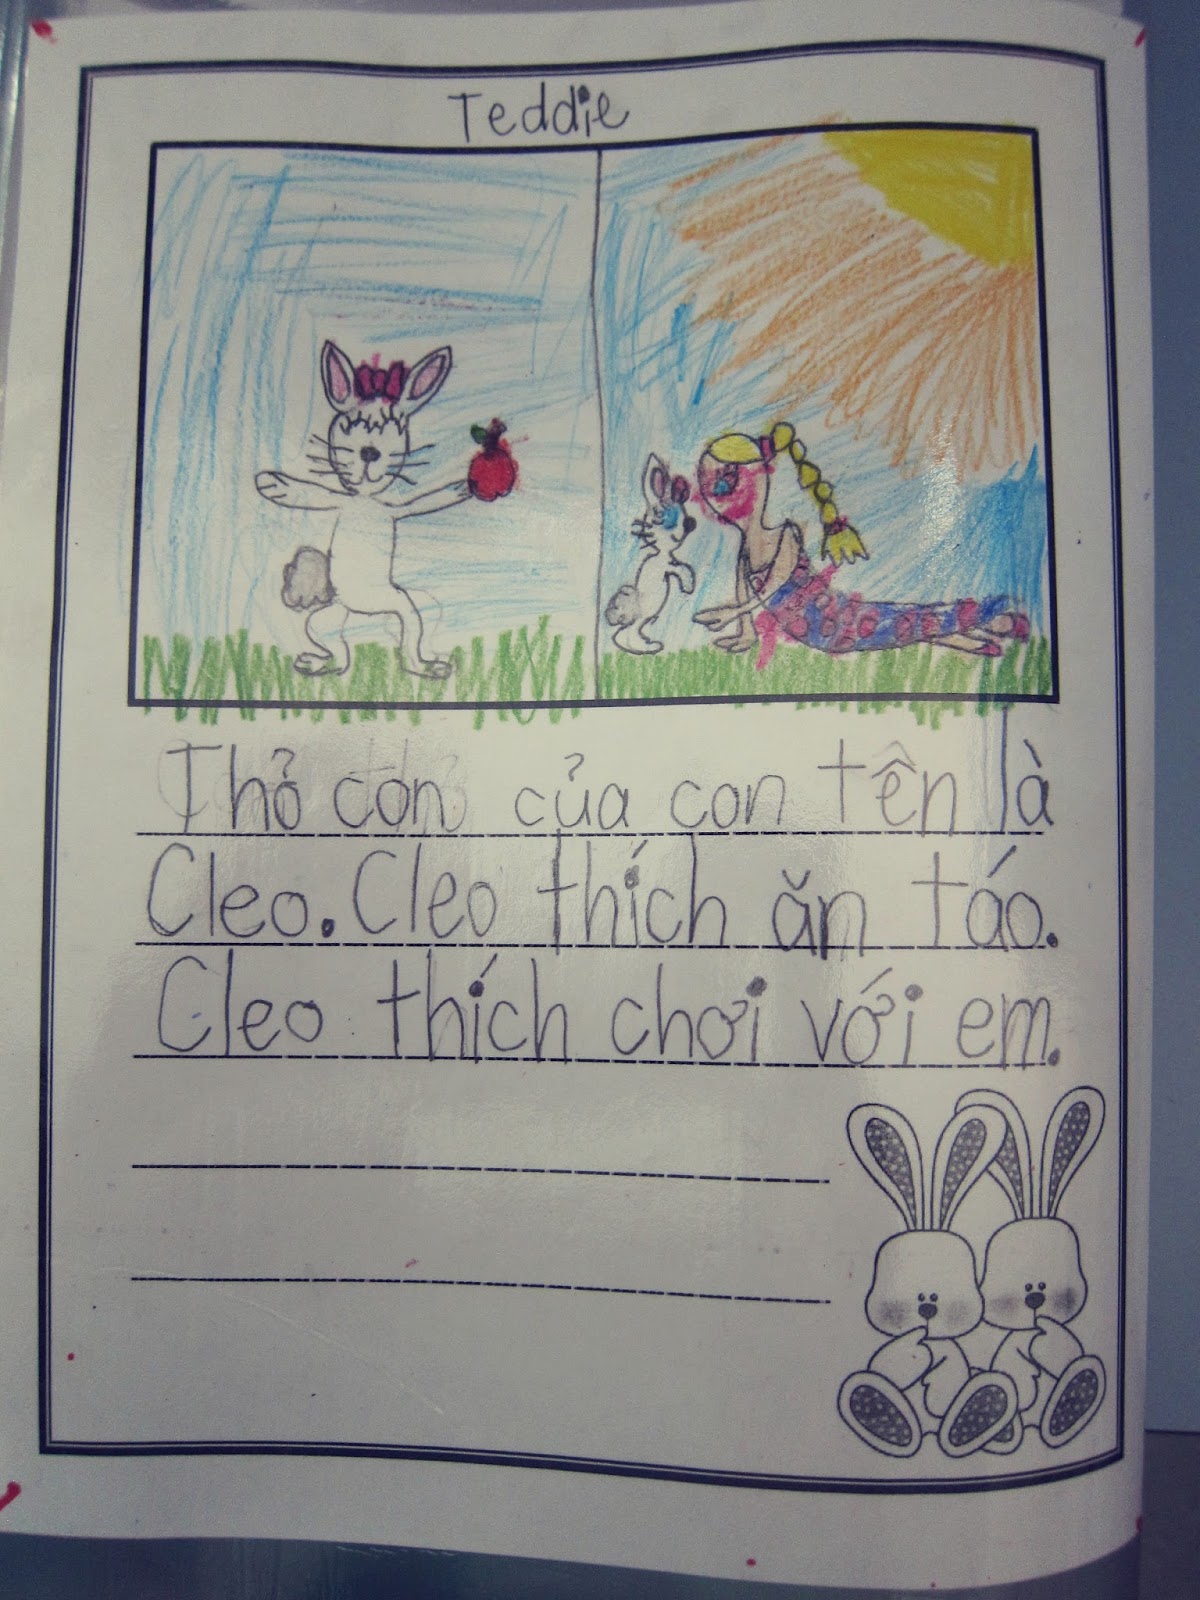 Teddie
Thỏ con của con tên là
Cleo. Cleo thích ăn táo.
Cleo thích chơi với em.